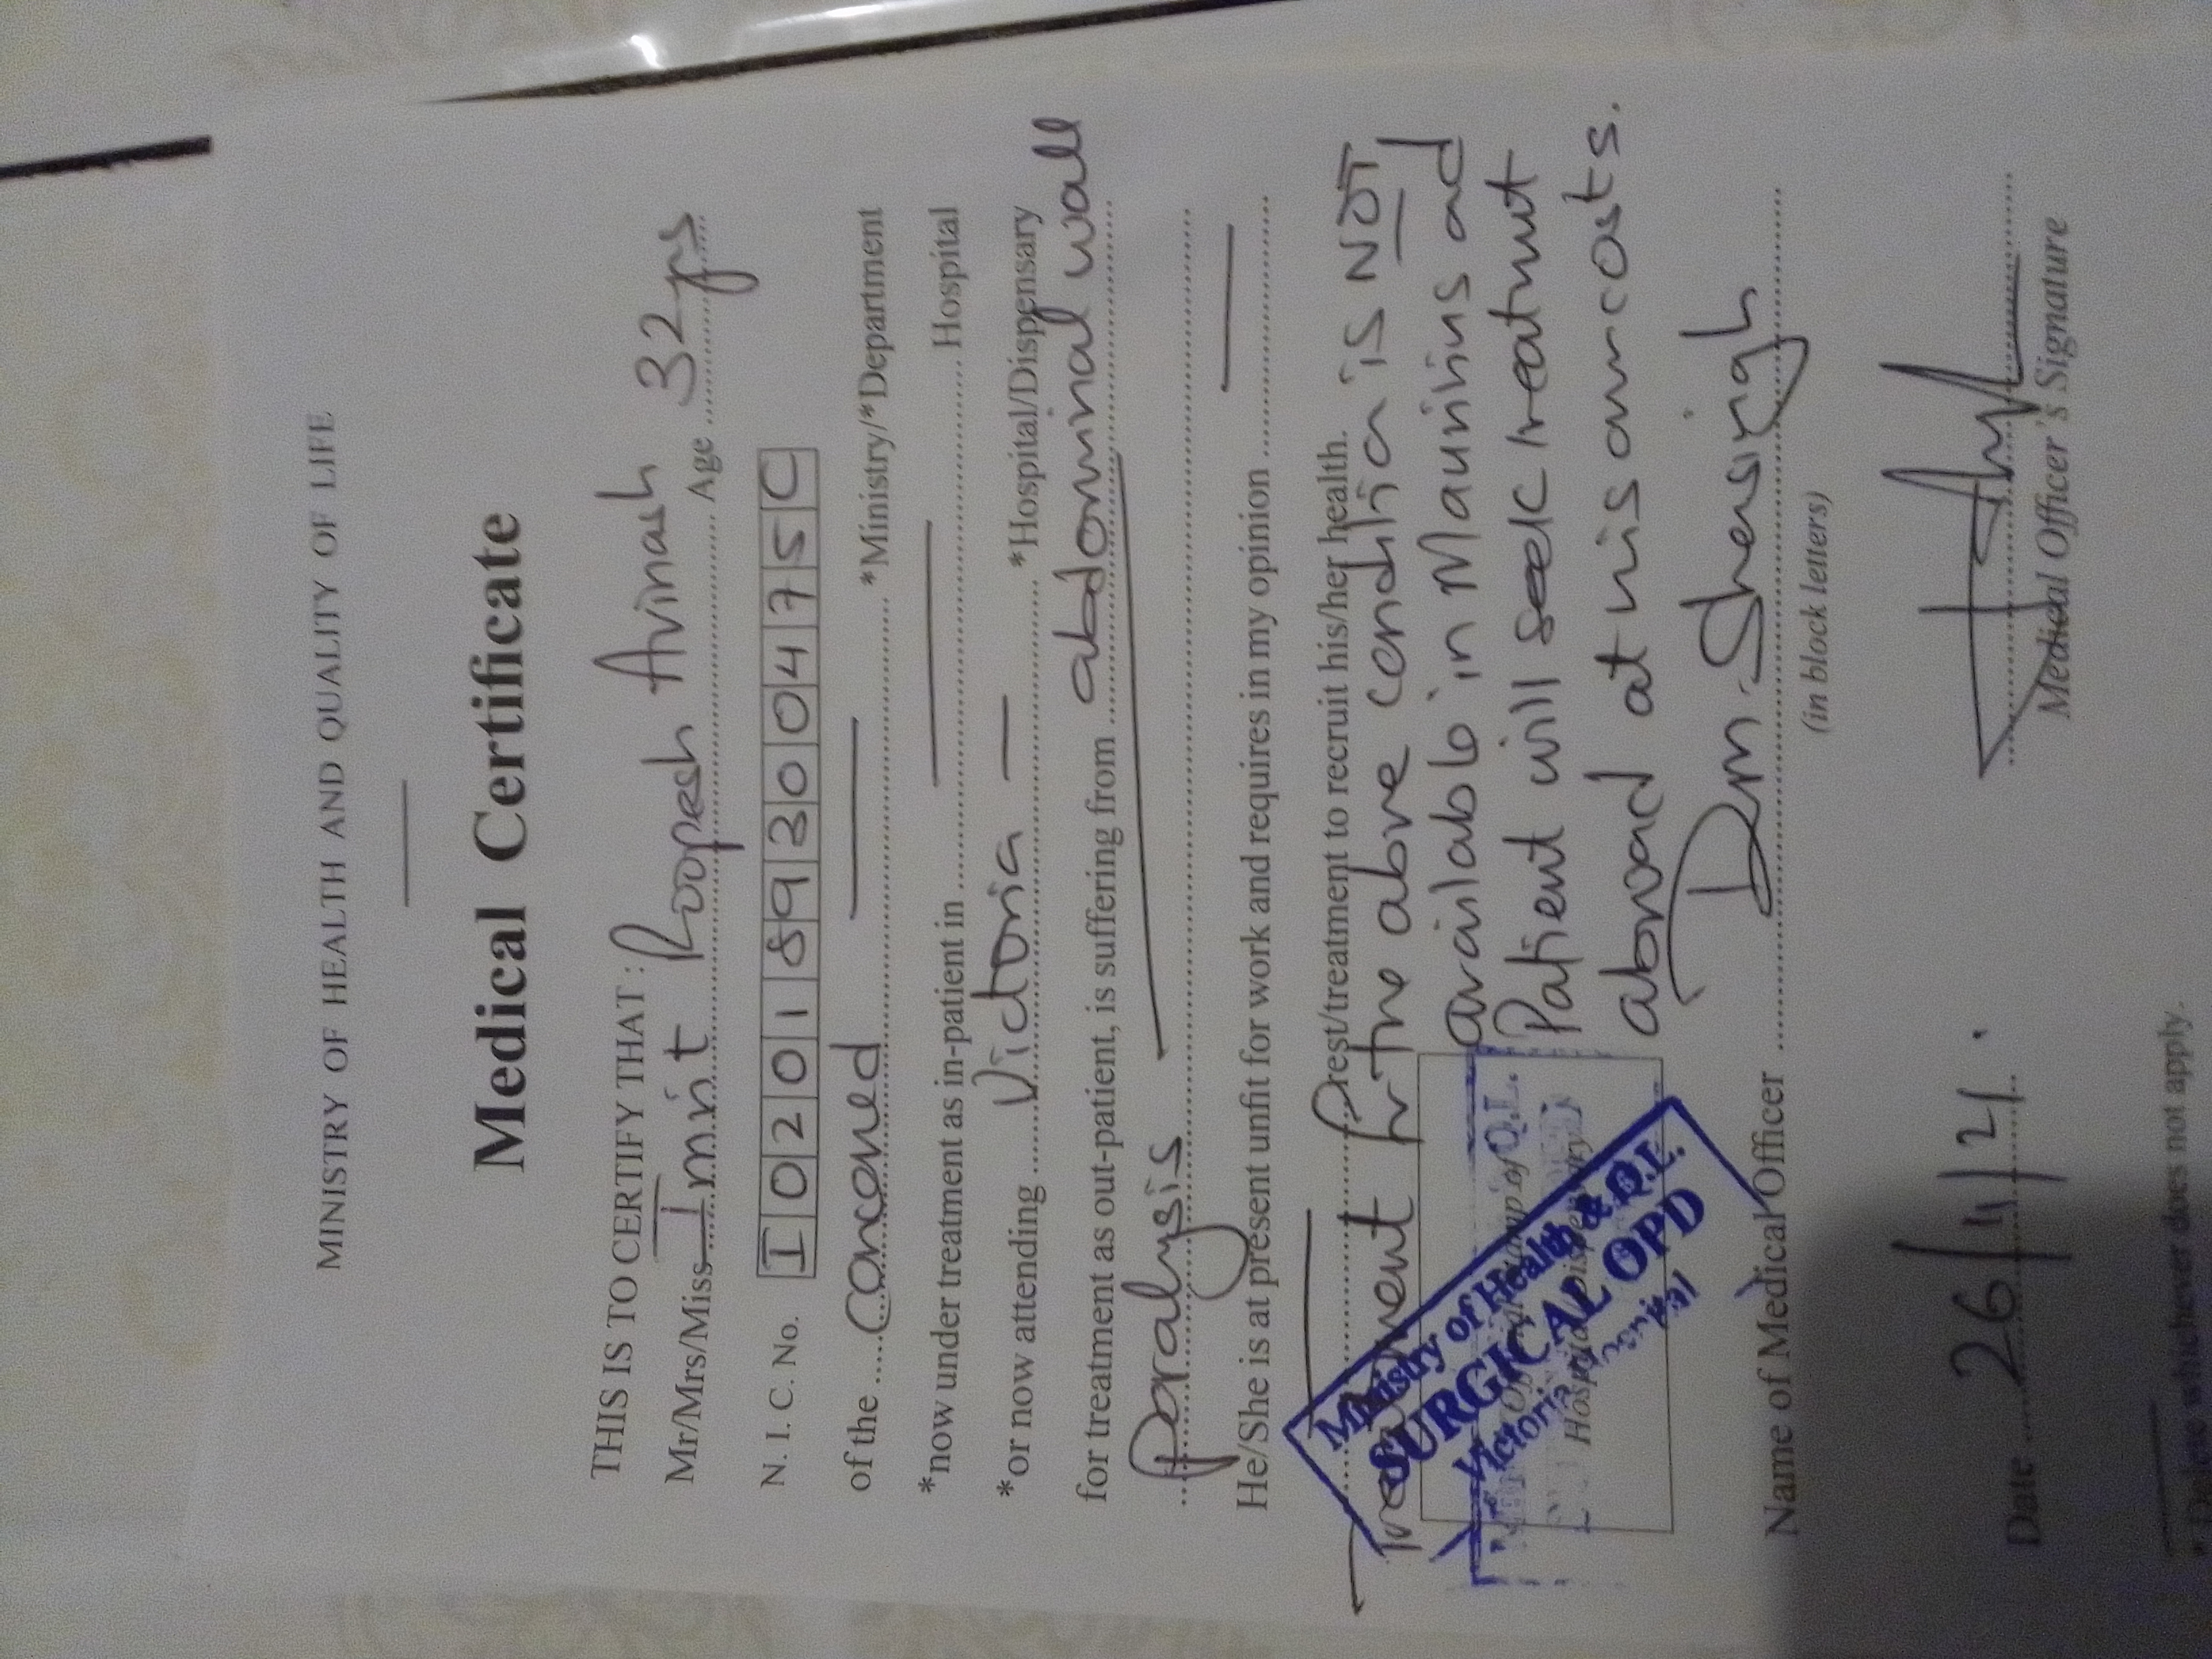 MINISTRY OF HEALTH AND QUALITY OF LIFE
Medical Certificate
THIS IS TO CERTIFY THAT : Roopesh Avinash
Mr/Mrs/Miss Imrit Age 32 yrs
N. I. C. No. I 0 2 0 1 8 9 3 0 0 4 7 5 C
of the concerned *Ministry/*Department
*now under treatment as in-patient in Hospital
*or now attending Victoria *Hospital/Dispensary
for treatment as out-patient, is suffering from abdominal wall
Paralysis
He/She is at present unfit for work and requires in my opinion
rest/treatment to recruit his/her health.
Treatment for the above condition is NOT
available in Mauritius and
Patient will seek treatment
abroad at his own costs.
Ministry of Health & Q.L.
SURGICAL OPD
Victoria Hospital
Name of Medical Officer
(in block letters)
Date 26/11/21.
Medical Officer's Signature
* Delete whichever does not apply.